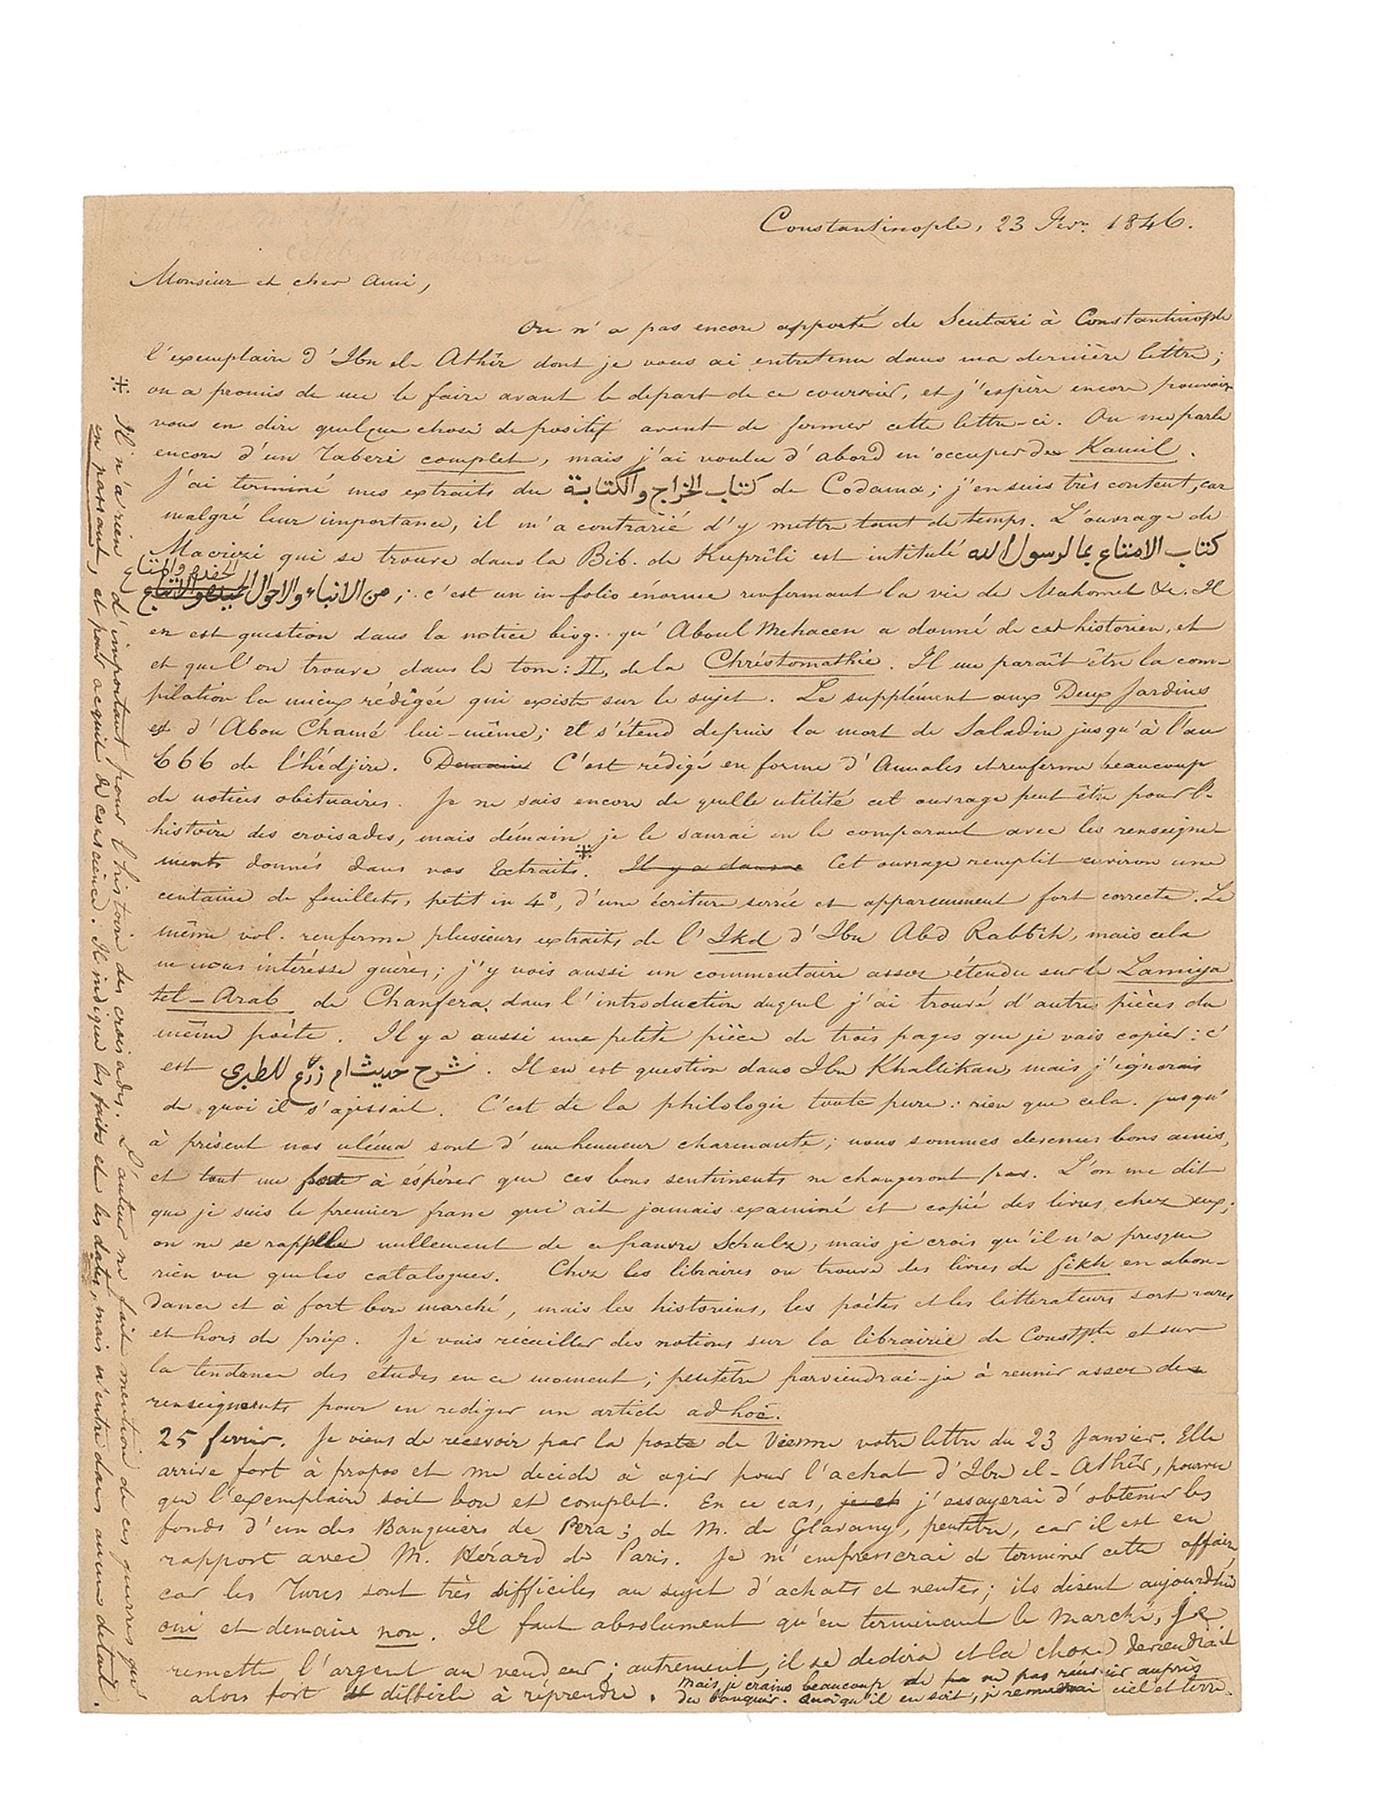 Constantinople, 23 Fevr. 1846.
Monsieur et cher Ami,
On n'a pas encore apporté de Scutari à Constantinople
l'exemplaire d'Ibn el-Athîr dont je vous ai entretenu dans ma dernière lettre;
on a promis de me le faire avant le depart de ce courrier, et j'espère encore pouvoir
vous en dire quelque chose de positif avant de fermer cette lettre-ci. On me parle
encore d'un Taberi complet, mais j'ai voulu d'abord m'occuper du Kamil.
J'ai terminé mes extraits du كتاب الخراج والكتابة de Codama; j'en suis très content, car
malgré leur importance, il m'a contrarié d'y mettre tant de temps. L'ouvrage de
Macrizi qui se trouve dans la Bib. de Kuprîli est intitulé كتاب الامتاع بما لرسول الله
الحفدة والمتاع
من الانباء والاحوال; c'est un in-folio énorme renfermant la vie de Mahomet &c. Il
en est question dans la notice biog. qu'Aboul Mehacen a donné de cet historien, et
et que l'on trouve dans le tom: II, de la Chréstomathie. Il me paraît être la com-
pilation la mieux rédigée qui existe sur le sujet. Le supplément aux Deux Jardins
est d'Abou Chamé lui-même; et s'étend depuis la mort de Saladin jusqu'à l'an
666 de l'hédjire. Demain C'est rédigé en forme d'Annales et renferme beaucoup
de notices obituaires. Je ne sais encore de quelle utilité cet ouvrage peut être pour l'-
histoire des croisades, mais démain je le saurai en le comparant avec les renseigne-
ments donnés dans vos Extraits.※ Il y a dans ce Cet ouvrage remplit environ une
centaine de feuillets, petit in 4°, d'une écriture serrée et apparemment fort correcte. Le
même vol. renferme plusieurs extraits de l'Ikd d'Ibn Abd Rabbih, mais cela
ne nous intéresse guères; j'y vois aussi un commentaire assez étendu sur le Lamiya
tel-Arab de Chanfera, dans l'introduction duquel j'ai trouvé d'autres pièces du
même poète. Il y a aussi une petite pièce de trois pages que je vais copier: c'
est شرح حديث ام زرع للطبرى. Il en est question dans Ibn Khallikan, mais j'ignorais
de quoi il s'agissait. C'est de la philologie toute pure: rien que cela. Jusqu'
à présent nos uléma sont d'une humeur charmante; nous sommes devenus bons amis,
et tout me porte à éspérer que ces bons sentiments ne changeront pas. L'on me dit
que je suis le premier franc qui ait jamais examiné et copié des livres chez eux;
on ne se rappelle nullement de ce pauvre Schulz, mais je crois qu'il n'a presque
rien vu que les catalogues. Chez les libraires on trouve des livres de fikh en abon-
dance et à fort bon marché, mais les historiens, les poètes et les litterateurs sont rares
et hors de prix. Je vais récueiller des notions sur la librairie de Constple et sur
la tendance des études en ce moment; peutêtre parviendrai-je à reunir assez de
renseignements pour en rediger un article ad hoc.
25 fevrier. Je viens de recevoir par la poste de Vienne votre lettre du 23 Janvier. Elle
arrive fort à propos et me decide à agir pour l'achat d'Ibn el-Athîr, pourvu
que l'exemplaire soit bon et complet. En ce cas, je et j'essayerai d'obtenir les
fonds d'un des Banquiers de Pera; de M. de Glavany, peutêtre, car il est en
rapport avec M. Hérard de Paris. Je m'empresserai de terminer cette affaire,
car les Turcs sont très difficiles au sujet d'achats et ventes; ils disent aujourdhui
oui et demain non. Il faut absolument qu'en terminant le marché, je
remette l'argent au vendeur; autrement, il se dedira et la chose deviendrait
alors fort difficile à réprendre. Mais je crains beaucoup de ne pas reussir auprès
du banquier. Quoiqu'il en soit, je remuerai ciel et terre.
※ Il n'a rien d'important pour l'histoire des croisades. L'auteur ne fait mention de ces guerres qu'
en passant, et pour acquit de conscience. Il indique les faits et les dates, mais n'entre dans aucun detail.